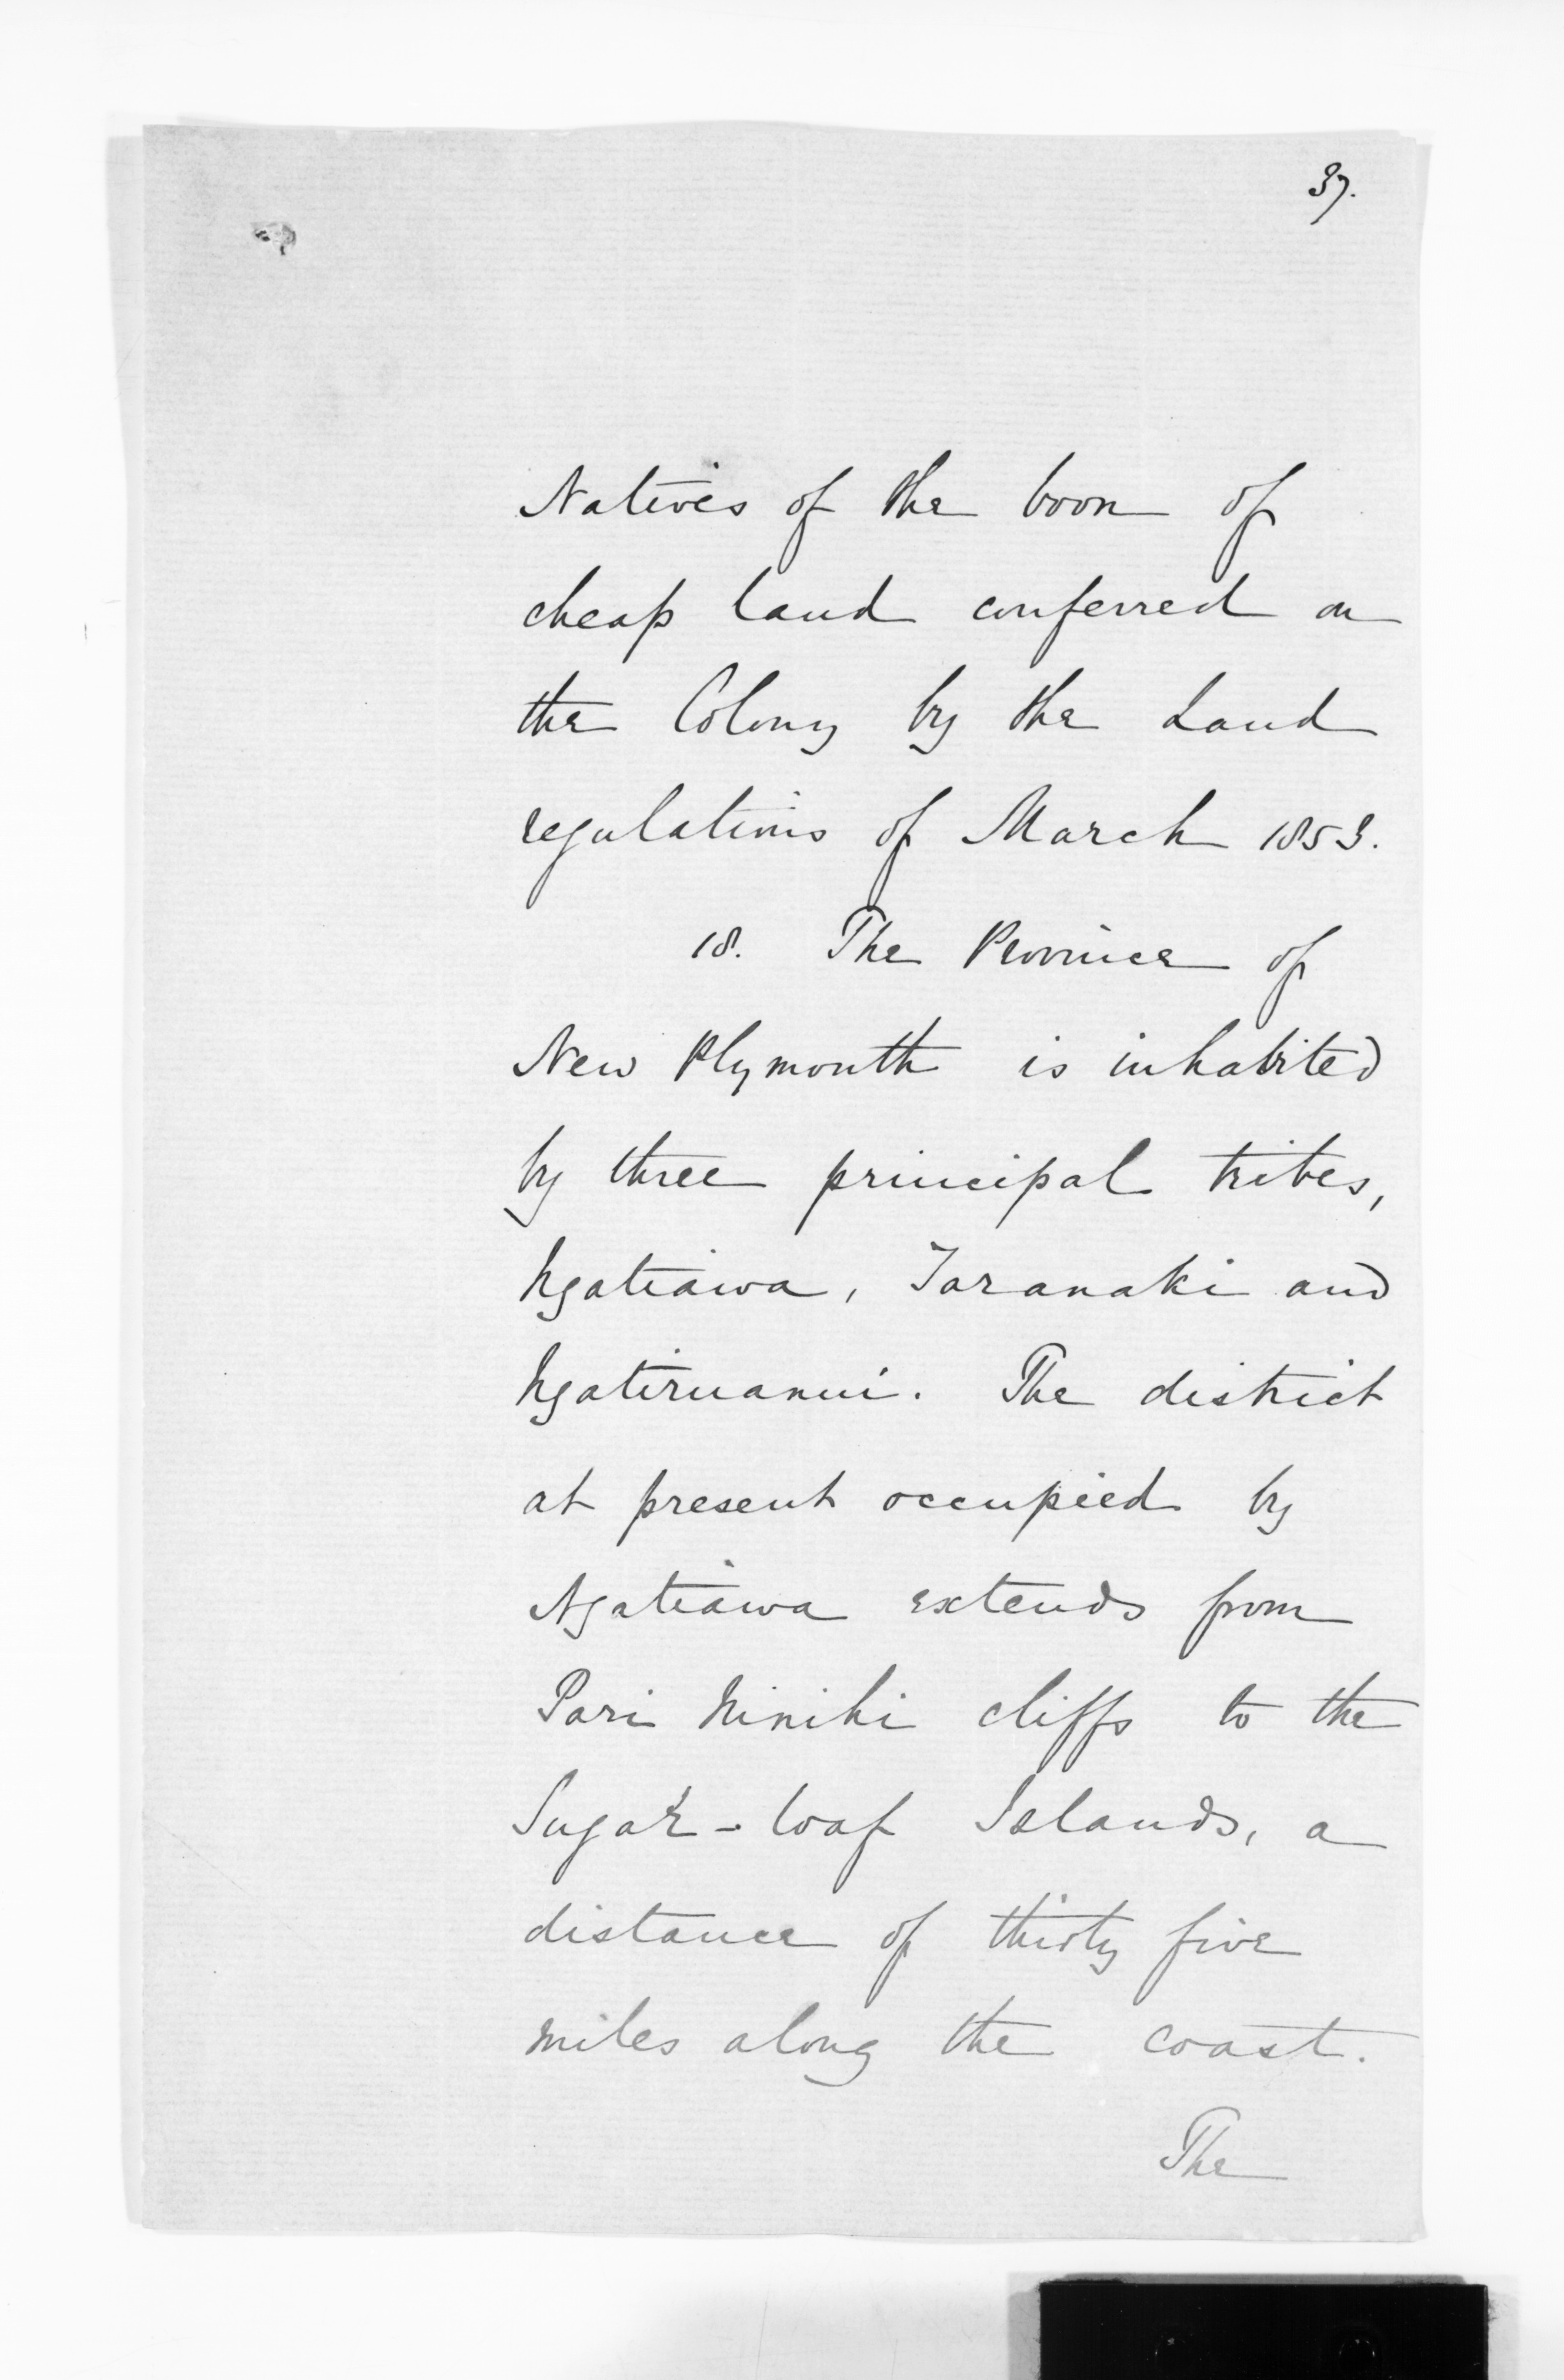 37.
Natives of the boon of
cheap land conferred on
the Colony by the Land
regulations of March 1853.
18. The Province of
New Plymouth is inhabited
by three principal tribes,
Ngatiawa, Taranaki and
Ngatiruanui. The district
at present occupied by
Ngatiawa extends from
Pari Ninihi cliffs to the
Sugar-loaf Islands, a
distance of thirty five
miles along the coast.
The